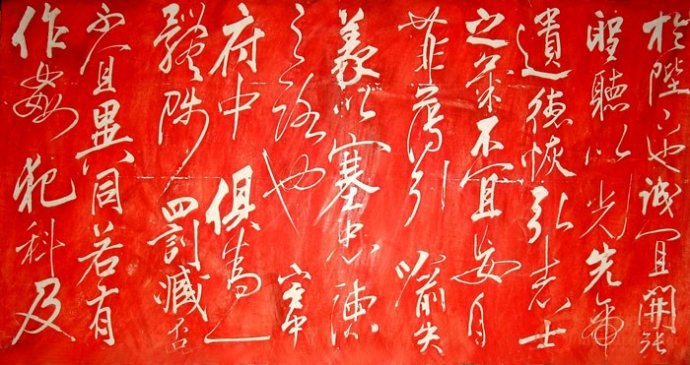 於陛下也誠宜開張
聖聽以光先帝
遺德恢弘志士
之氣不宜妄自
菲薄引喻失
義以塞忠諫
之路也宮中
府中俱為一
體陟罰臧否
不宜異同若有
作姦犯科及